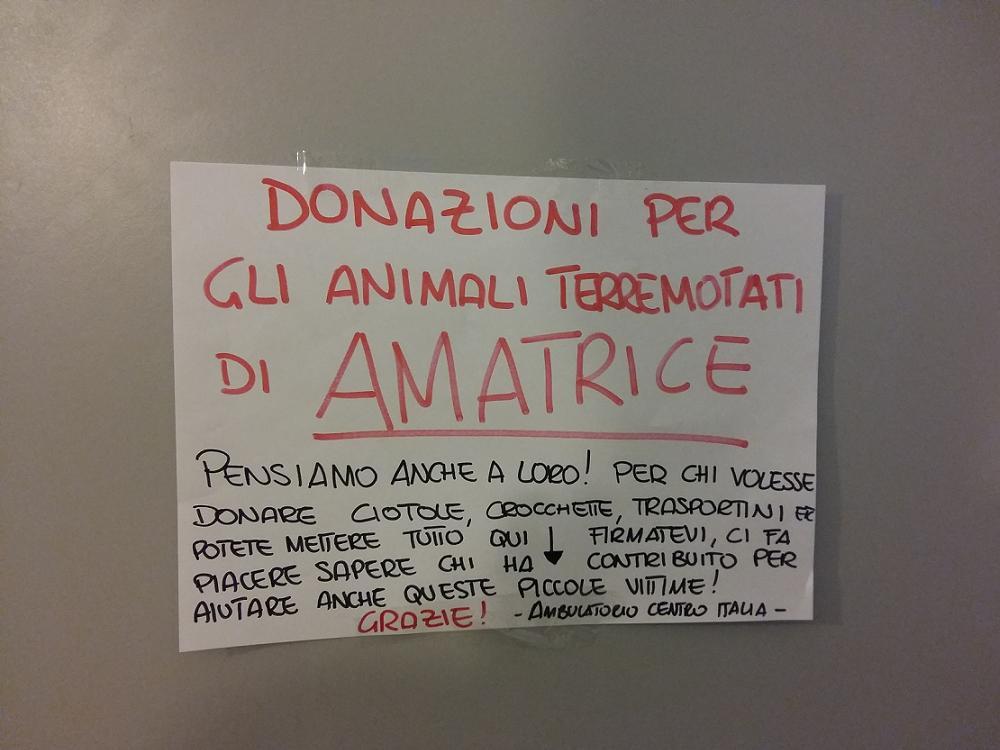 DONAZIONI PER
GLI ANIMALI TERREMOTATI
DI AMATRICE
PENSIAMO ANCHE A LORO! PER CHI VOLESSE
DONARE CIOTOLE, CROCCHETTE, TRASPORTINI
POTETE METTERE TUTTO QUI ↓ FIRMATEVI, CI FA
PIACERE SAPERE CHI HA CONTRIBUITO PER
AIUTARE ANCHE QUESTE PICCOLE VITTIME!
GRAZIE! - AMBULATORIO CENTRO ITALIA -